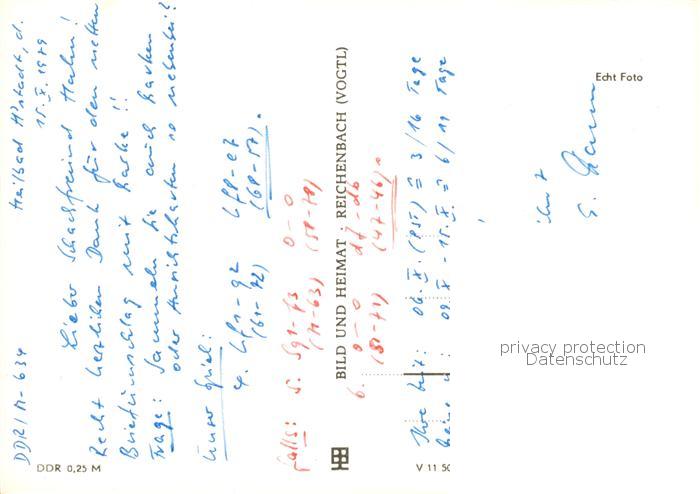 DDR/M-634 Heilbad H'stadt, d.
15. X. 1979
Lieber Schachfreund Hahn!
Recht herzlichen Dank für den netten
Briefumschlag mit Karte!!
Frage: Sammeln Sie auch Karten
oder Ansichtskarten so nebenbei?
Unser Spiel:
4. Lf1-g2 Lf8-e7
(61-72) (68-57).
falls: 5. Sg1-f3 0-0
(71-63) (58-78)
6. 0-0 d7-d6
(51-71) (47-46).
Ihre Zeit: 06. X. (PST) = 3/16 Tage
09. X - 15. X. = 6/11 Tage
BILD UND HEIMAT REICHENBACH (VOGTL)
Echt Foto
Ihr
DDR 0,25 M
V 11 50
privacy protection
Datenschutz